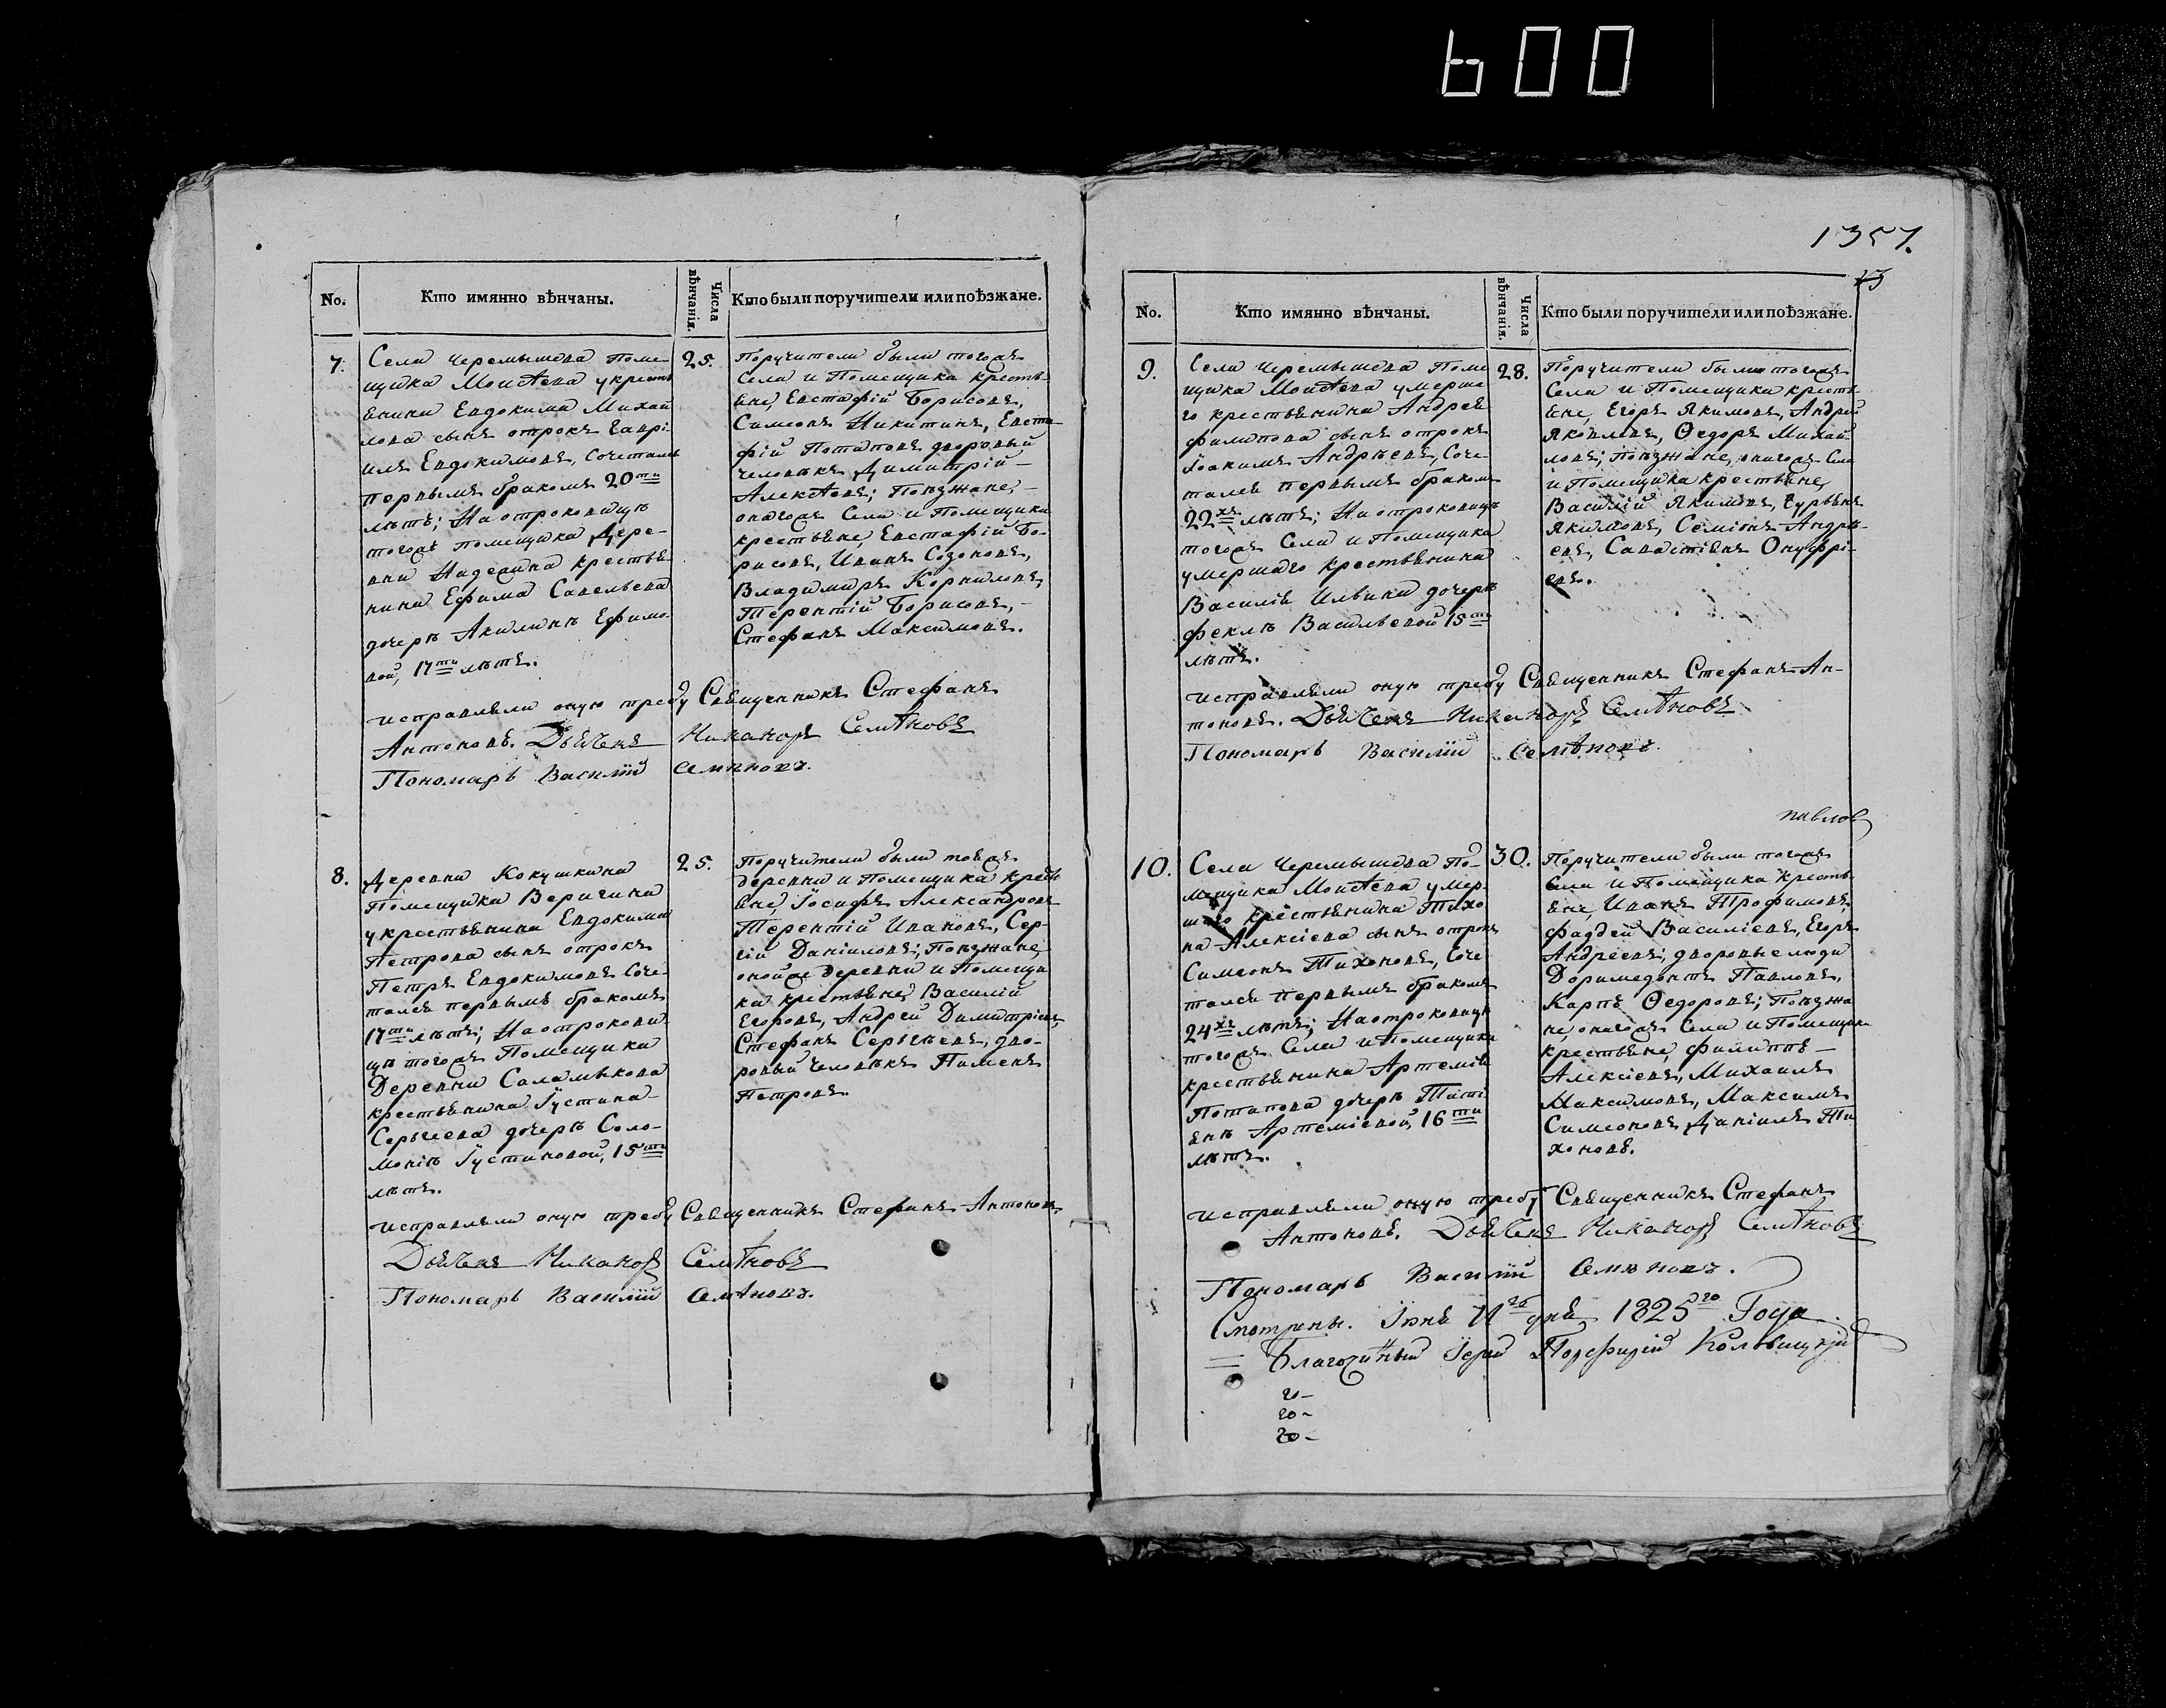 600
1357.
13
No.
Кто имянно вѣнчаны.
Числа вѣнчанія.
Кто были поручители или поѣзжане.
7.
Села Черемышева Поме-
щика Моисѣева у кресть
янина Евдокима Михай
лова сынъ отрокъ Гаврі-
илъ Евдокимовъ, Сочетался
первымъ бракомъ 20ти
лѣтъ; На отроковицѣ
тогожъ помещика Дере-
вни крестья
нина Ефима Савельева
дочерѣ Акилинѣ Ефимо-
вой, 17ти лѣтъ.
25.
Поручители были тогожъ
Села и Помещика кресть-
яне, Евстафій Борисовъ,
Симеонъ Никитинъ, Евста-
фій Потаповъ дворовый
человѣкъ Димитрій
Алексѣевъ; Поѣзжане,
онагожъ Села и Помещика
крестьяне, Евстафій Бо-
рисовъ, Иванъ Созоновъ,
Владимиръ Корниловъ,
Терентій Борисовъ,
Стефанъ Максимовъ.
исправляли оную требу Священникъ Стефанъ
Антоновъ. Дьячекъ Никаноръ Семѣновъ
Пономарь Василій Семѣновъ.
8.
Деревни Кокушкина
Помещика Веригина
у крестьянина Евдокима
Петрова сынъ отрокъ
Петръ Евдокимовъ Соче-
тался первымъ бракомъ
17ти лѣтъ; На отрокови-
цѣ тогожъ Помещика
Деревни Саламыкова
крестьянина Іустина
Сергѣева дочерѣ Соло-
моніѣ Іустиновой, 15ти
лѣтъ.
25.
Поручители были тояжъ
деревни и Помещика кресть
яне, Іосифъ Александровъ
Терентій Ивановъ, Сер-
гій Даніиловъ; Поѣзжане,
онойже деревни и Помещи
ка крестьяне, Василій
Егоровъ, Андрей Димитріевъ,
Стефанъ Сергѣевъ, дво-
ровый человѣкъ Пименъ
Петровъ.
исправляли оную требу Священникъ Стефанъ Антоновъ
Дьячекъ Никаноръ Семѣновъ
Пономарь Василій Семѣновъ.
No.
Кто имянно вѣнчаны.
Числа вѣнчанія.
Кто были поручители или поѣзжане.
9.
Села Черемышева Поме
щика Моисѣева умерша
го крестьянина Андрея
Филипова сынъ отрокъ
Іоакимъ Андрѣевъ, Соче-
тался первымъ бракомъ
22хъ лѣтъ; На отроковицѣ
тогожъ Села и Помещика
умершаго крестьянина
Василія Ильина дочерѣ
Феклѣ Васильевой 15ти
лѣтъ.
28.
Поручители были тогожъ
Села и Помещика кресть
яне, Егоръ Якимовъ, Андрей
Яковлевъ, Ѳедоръ Михай-
ловъ; Поѣзжане, онагожъ Села
и Помещика крестьяне,
Василій Якимовъ, Гурьянъ
Якимовъ, Семіонъ Андрѣ-
евъ, Савастіянъ Онуфрі-
евъ.
исправляли оную требу Священникъ Стефанъ Ан-
тоновъ. Дьячекъ Никаноръ Семѣновъ
Пономарь Василій Семѣновъ.
павлов
10.
Села Черемышева По-
мещика Моисѣева умер-
шаго крестьянина Тихо
на Алексіева сынъ отрокъ
Симеонъ Тихоновъ, Соче
тался первымъ бракомъ
24хъ лѣтъ; На отроковицѣ
тогожъ Села и Помещика
крестьянина Артемія
Потапова дочерѣ Тати
янѣ Артеміевой, 16ти
лѣтъ.
30.
Поручители были тогожъ
Села и Помещика кресть-
яне, Иванъ Трофимовъ,
Фаддей Василіевъ, Егоръ
Андреевъ; дворовые люди
Доримедонтъ Павловъ,
Карпъ Ѳедоровъ; Поѣзжа
не, онагожъ Села и Помещика
крестьяне, Филиппъ
Алексіевъ, Михаилъ
Максимовъ, Максимъ
Симеоновъ, Даніилъ Ти
хоновъ.
исправляли оную требу Священникъ Стефанъ
Антоновъ. Дьячекъ Никаноръ Семѣновъ
Пономарь Василій Семѣновъ.
Смотрены. Іюня дня 1825го Года.
Благочинный Іерей Порфирій
20-
20-
20-